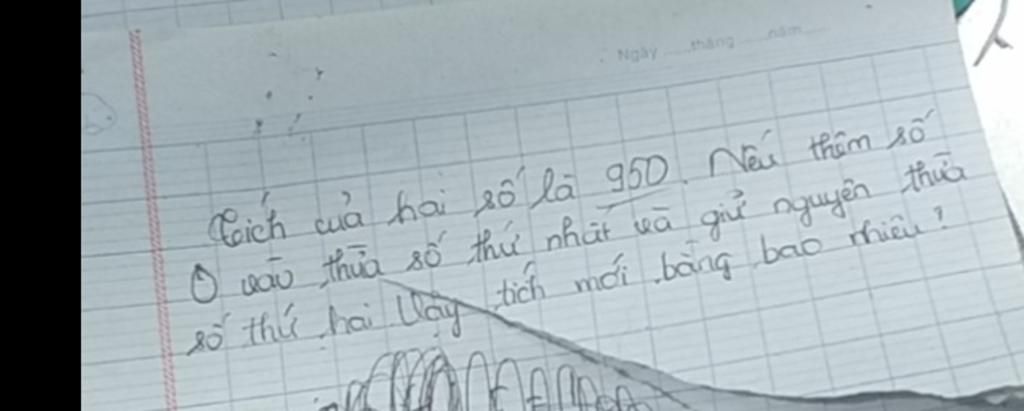 Ngày tháng năm
Tích của hai số là 950. Nếu thêm số
0 vào thừa số thứ nhất và giữ nguyên thừa
số thứ hai Vậy tích mới bằng bao nhiêu?